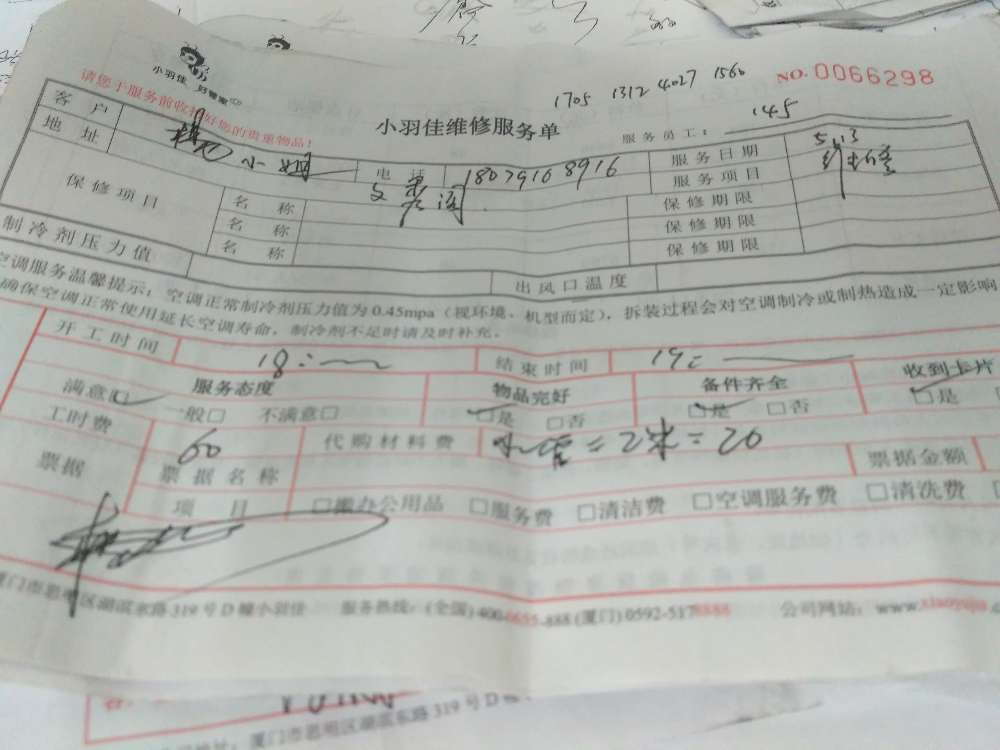 小羽佳 好管家
请您于服务前收拾好您的贵重物品！
1705 1312 4027 1560
NO.0066298
小羽佳维修服务单
服务员工： 145
客户 小姐 电话 18079168916 服务日期 5.13
地址 服务项目 维修
保修项目 名称 保修期限
名称 保修期限
名称 保修期限
制冷剂压力值 出风口温度
空调服务温馨提示：空调正常制冷剂压力值为0.45mpa（视环境、机型而定），拆装过程会对空调制冷或制热造成一定影响
确保空调正常使用延长空调寿命，制冷剂不足时请及时补充。
开工时间 18： 结束时间 19：
服务态度 物品完好 备件齐全 收到卡片
满意☑ 一般□ 不满意□ ☑是 □否 ☑是 □否 ☑是
工时费 60 代购材料费 水管=2米=20
票据 票据名称 票据金额
项目 □搬办公用品 □服务费 □清洁费 □空调服务费 □清洗费
厦门市思明区湖滨东路319号D幢小羽佳 服务热线：(全国)400-6655-888 (厦门)0592-5178888 公司网站：www.xiaoyujia.
厦门市思明区湖滨东路319号D幢